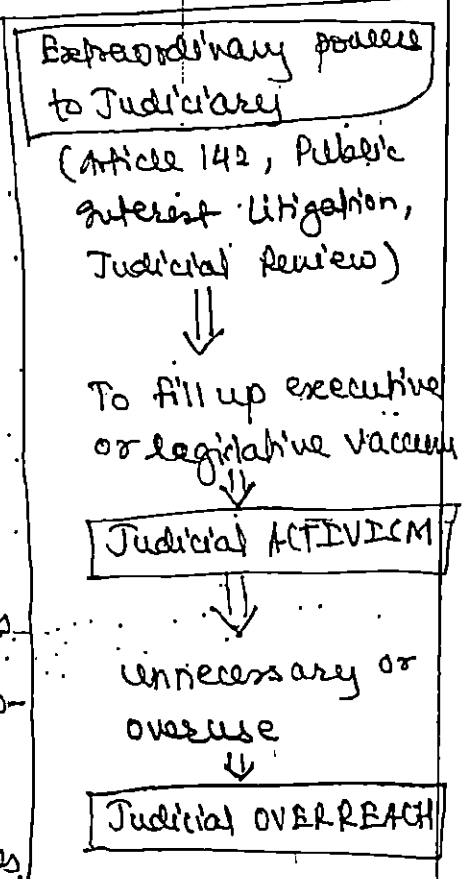 Extraordinary powers
to Judiciary
(Article 142, Public
Interest Litigation,
Judicial Review)
⇓
To fill up executive
or legislative vaccum
⇓
Judicial ACTIVISM
⇓
unnecessary or
overuse
⇓
Judicial OVERREACH